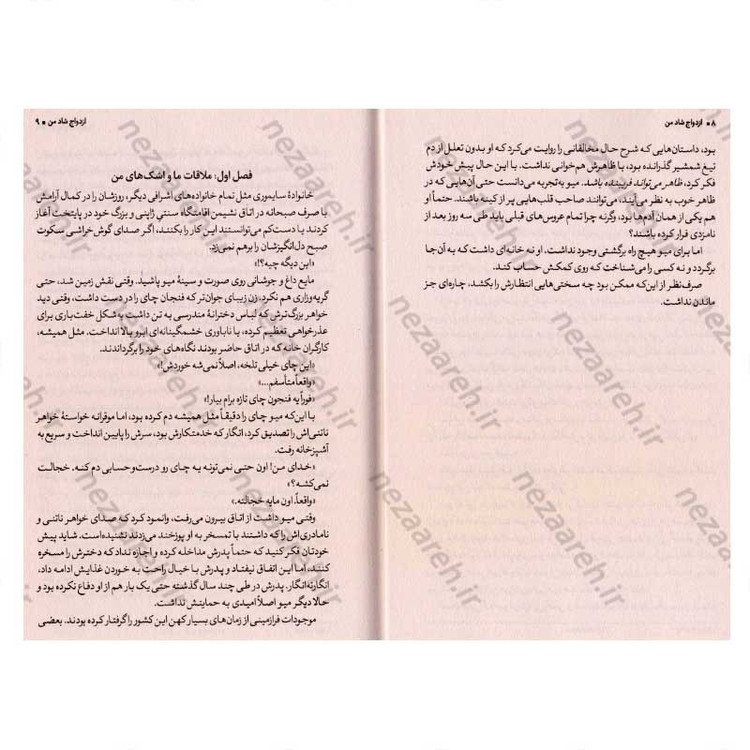 ۸ ■ ازدواج شاد من
بود، داستان‌هایی که شرح حال مخالفانی را روایت می‌کرد که او بدون تعلل از دم
تیغ شمشیر گذرانده بود، با ظاهرش هم‌خوانی نداشت. با این حال پیش خودش
فکر کرد، ظاهر می‌تواند فریبنده باشد. میو به‌تجربه می‌دانست حتی آن‌هایی که در
ظاهر خوب به نظر می‌آیند، می‌توانند صاحب قلب‌هایی پر از کینه باشند. حتماً او
هم یکی از همان آدم‌ها بود، وگرنه چرا تمام عروس‌های قبلی باید طی سه روز بعد از
نامزدی فرار کرده باشند؟
اما برای میو هیچ راه برگشتی وجود نداشت. او نه خانه‌ای داشت که به آن‌جا
برگردد و نه کسی را می‌شناخت که روی کمکش حساب کند.
صرف‌نظر از این‌که ممکن بود چه سختی‌هایی انتظارش را بکشد، چاره‌ای جز
ماندن نداشت.
ازدواج شاد من ■ ۹
فصل اول: ملاقات ما و اشک‌های من
خانوادهٔ سایموری مثل تمام خانواده‌های اشرافی دیگر، روزشان را در کمال آرامش
با صرف صبحانه در اتاق نشیمن اقامتگاه سنتیِ ژاپنی و بزرگ خود در پایتخت آغاز
کردند یا دست‌کم می‌توانستند این کار را بکنند، اگر صدای گوش‌خراشی سکوت
صبح دل‌انگیزشان را برهم نمی‌زد.
«این دیگه چیه؟!»
مایع داغ و جوشانی روی صورت و سینهٔ میو پاشید. وقتی نقش زمین شد، حتی
گریه‌وزاری هم نکرد. زن زیبای جوان‌تر که فنجان چای را در دست داشت، وقتی دید
خواهر بزرگ‌ترش که لباس دخترانهٔ مندرسی به تن داشت به‌شکل خفت‌باری برای
عذرخواهی تعظیم کرده، با ناباوری خشمگینانه‌ای ابرو بالا انداخت. مثل همیشه،
کارگران خانه که در اتاق حاضر بودند نگاه‌های خود را برگرداندند.
«این چای خیلی تلخه، اصلاً نمی‌شه خوردش!»
«واقعاً متأسفم...»
«فوراً یه فنجون چای تازه برام بیار!»
با این‌که میو چای را دقیقاً مثل همیشه دم کرده بود، اما موقرانه خواستهٔ خواهر
ناتنی‌اش را تصدیق کرد، انگار که خدمتکارش بود، سرش را پایین انداخت و سریع به
آشپزخانه رفت.
«خدای من! اون حتی نمی‌تونه یه چای رو درست‌وحسابی دم کنه. خجالت
نمی‌کشه؟»
«واقعاً. اون مایه خجالته.»
وقتی میو داشت از اتاق بیرون می‌رفت، وانمود کرد که صدای خواهر ناتنی و
نامادری‌اش را که داشتند با تمسخر به او پوزخند می‌زدند نشنیده‌است. شاید پیش
خودتان فکر کنید که حتماً پدرش مداخله کرده و اجازه نداد که دخترش را مسخره
کنند، اما این اتفاق نیفتاد و پدرش با خیال راحت به خوردن غذایش ادامه داد،
انگارنه‌انگار. پدرش در طی چند سال گذشته حتی یک بار هم از او دفاع نکرده بود و
حالا دیگر میو اصلاً امیدی به حمایتش نداشت.
موجودات فرازمینی از زمان‌های بسیار کهن این کشور را گرفتار کرده بودند. بعضی
nezaareh.ir